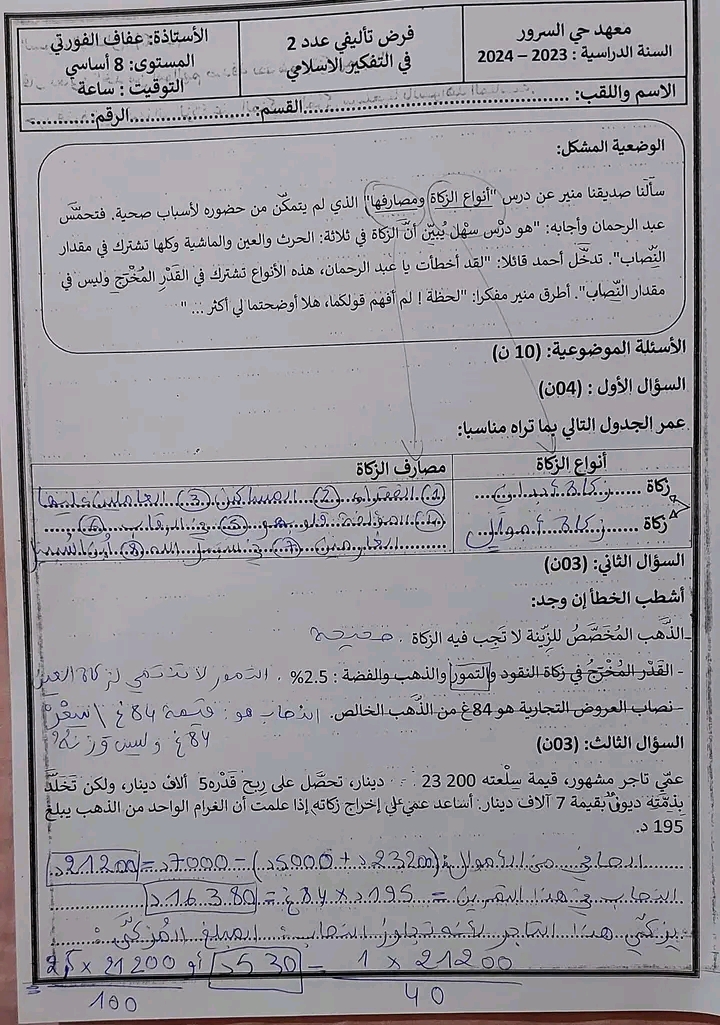 معهد حي السرور
السنة الدراسية : 2023 – 2024
فرض تأليفي عدد 2
في التفكير الاسلامي
الأستاذة: عفاف الفورتي
المستوى: 8 أساسي
التوقيت : ساعة
الاسم واللقب: ........................................القسم: ....................الرقم:..........
الوضعية المشكل:
سألنا صديقنا منير عن درس "أنواع الزكاة ومصارفها" الذي لم يتمكّن من حضوره لأسباب صحية. فتحمّس
عبد الرحمان وأجابه: "هو درْس سهْل يُبيّن أنّ الزكاة في ثلاثة: الحرث والعين والماشية وكلها تشترك في مقدار
النّصاب". تدخّل أحمد قائلا: "لقد أخطأت يا عبد الرحمان، هذه الأنواع تشترك في القَدْرِ المُخْرَجِ وليس في
مقدار النّصاب". أطرق منير مفكرا: "لحظة ! لم أفهم قولكما، هلا أوضحتما لي أكثر ... "
الأسئلة الموضوعية: (10 ن)
السؤال الأول : (04ن)
عمر الجدول التالي بما تراه مناسبا:
أنواع الزكاة
مصارف الزكاة
زكاة ......زكاة أبدان......
زكاة ......زكاة أموال
① الفقراء ② المساكين ③ العاملين عليها
④ المؤلفة قلوبهم ⑤ في الرقاب ⑥
الغارمين ⑦ في سبيل الله ⑧ ابن السبيل
السؤال الثاني: (03ن)
أشطب الخطأ إن وجد:
-الذّهب المُخَصَّصُ للزّينة لا تَجِب فيه الزكاة . صحيحة
- القَدْر المُخْرَجُ في زكاة النقود والتمور والذهب والفضة : 2.5% . التمور لا تنتمي لزكاة العين
- نصاب العروض التجارية هو 84غ من الذّهب الخالص. النصاب هو: قيمة 84 غ \ سعْر
84 غ وليس وزنه
السؤال الثالث: (03ن)
عمّي تاجر مشهور، قيمة سِلْعته 200 23 دينار، تحصّل على ربح قَدْره5 آلاف دينار، ولكن تَخَلَّدَ
بِذمّته ديون بقيمة 7 آلاف دينار. أساعد عمي علي إخراج زكاته إذا علمت أن الغرام الواحد من الذهب يبلغ
195 د.
الصافي من الأموال: (23200د + 5000د) – 7000د = 21200د
النصاب في هذا التمرين = 195د × 84غ = 16.380د
يزكّي هذا التاجر لأنه تجاوز النصاب: المبلغ المُزكّى:
21200 × 1 / 40 = 530د أو 21200 × 2,5 / 100